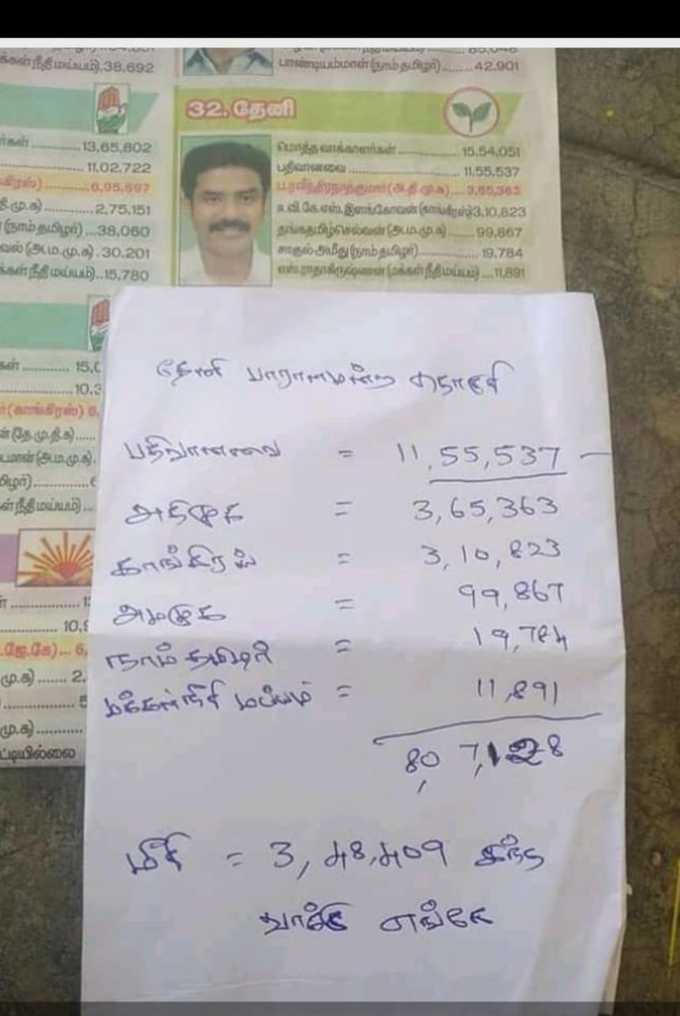 பாண்டியம்மாள் (நாம் தமிழர்) ........ 42.901
க்கள் நீதி மய்யம்). 38,692
32. தேனி
மொத்த வாக்காளர்கள் ............ 15.54,051
பதிவானவை ............ 11,55,537
ப.ரவீந்திரநாத்குமார் (அ.தி.மு.க) .... 3,65,363
ஈ.வி.கே.எஸ். இளங்கோவன் (காங்கிரஸ்) 3,10,823
தங்கதமிழ்செல்வன் (அ.ம.மு.க) ...... 99,867
சாகுல் அமீது (நாம் தமிழர்) ............ 19.784
எஸ்.ராதாகிருஷ்ணன் (மக்கள் நீதி மய்யம்) ... 11,891
13,65,802
11.02,722
6,95,697
தி.மு.க) ............ 2,75,151
(நாம் தமிழர்) ... 38,060
வேல் (அ.ம.மு.க) . 30.201
க்கள் நீதி மய்யம்) .. 15,780
(காங்கிரஸ்)
ன் (தே.மு.தி.க) .....
ள் நீதி மய்யம்) ...
ட்டியில்லை
தேனி பாராளமன்ற தொகுதி
பதிவானவை = 11,55,537 —
அதிமுக = 3,65,363
காங்கிரஸ் = 3,10,823
அமமுக = 99,867
நாம் தமிழர் = 19,784
மக்கள் நீதி மய்யம் = 11,891
80 7,128
மீதி = 3,48,409 இந்த
வாக்கு எங்கே